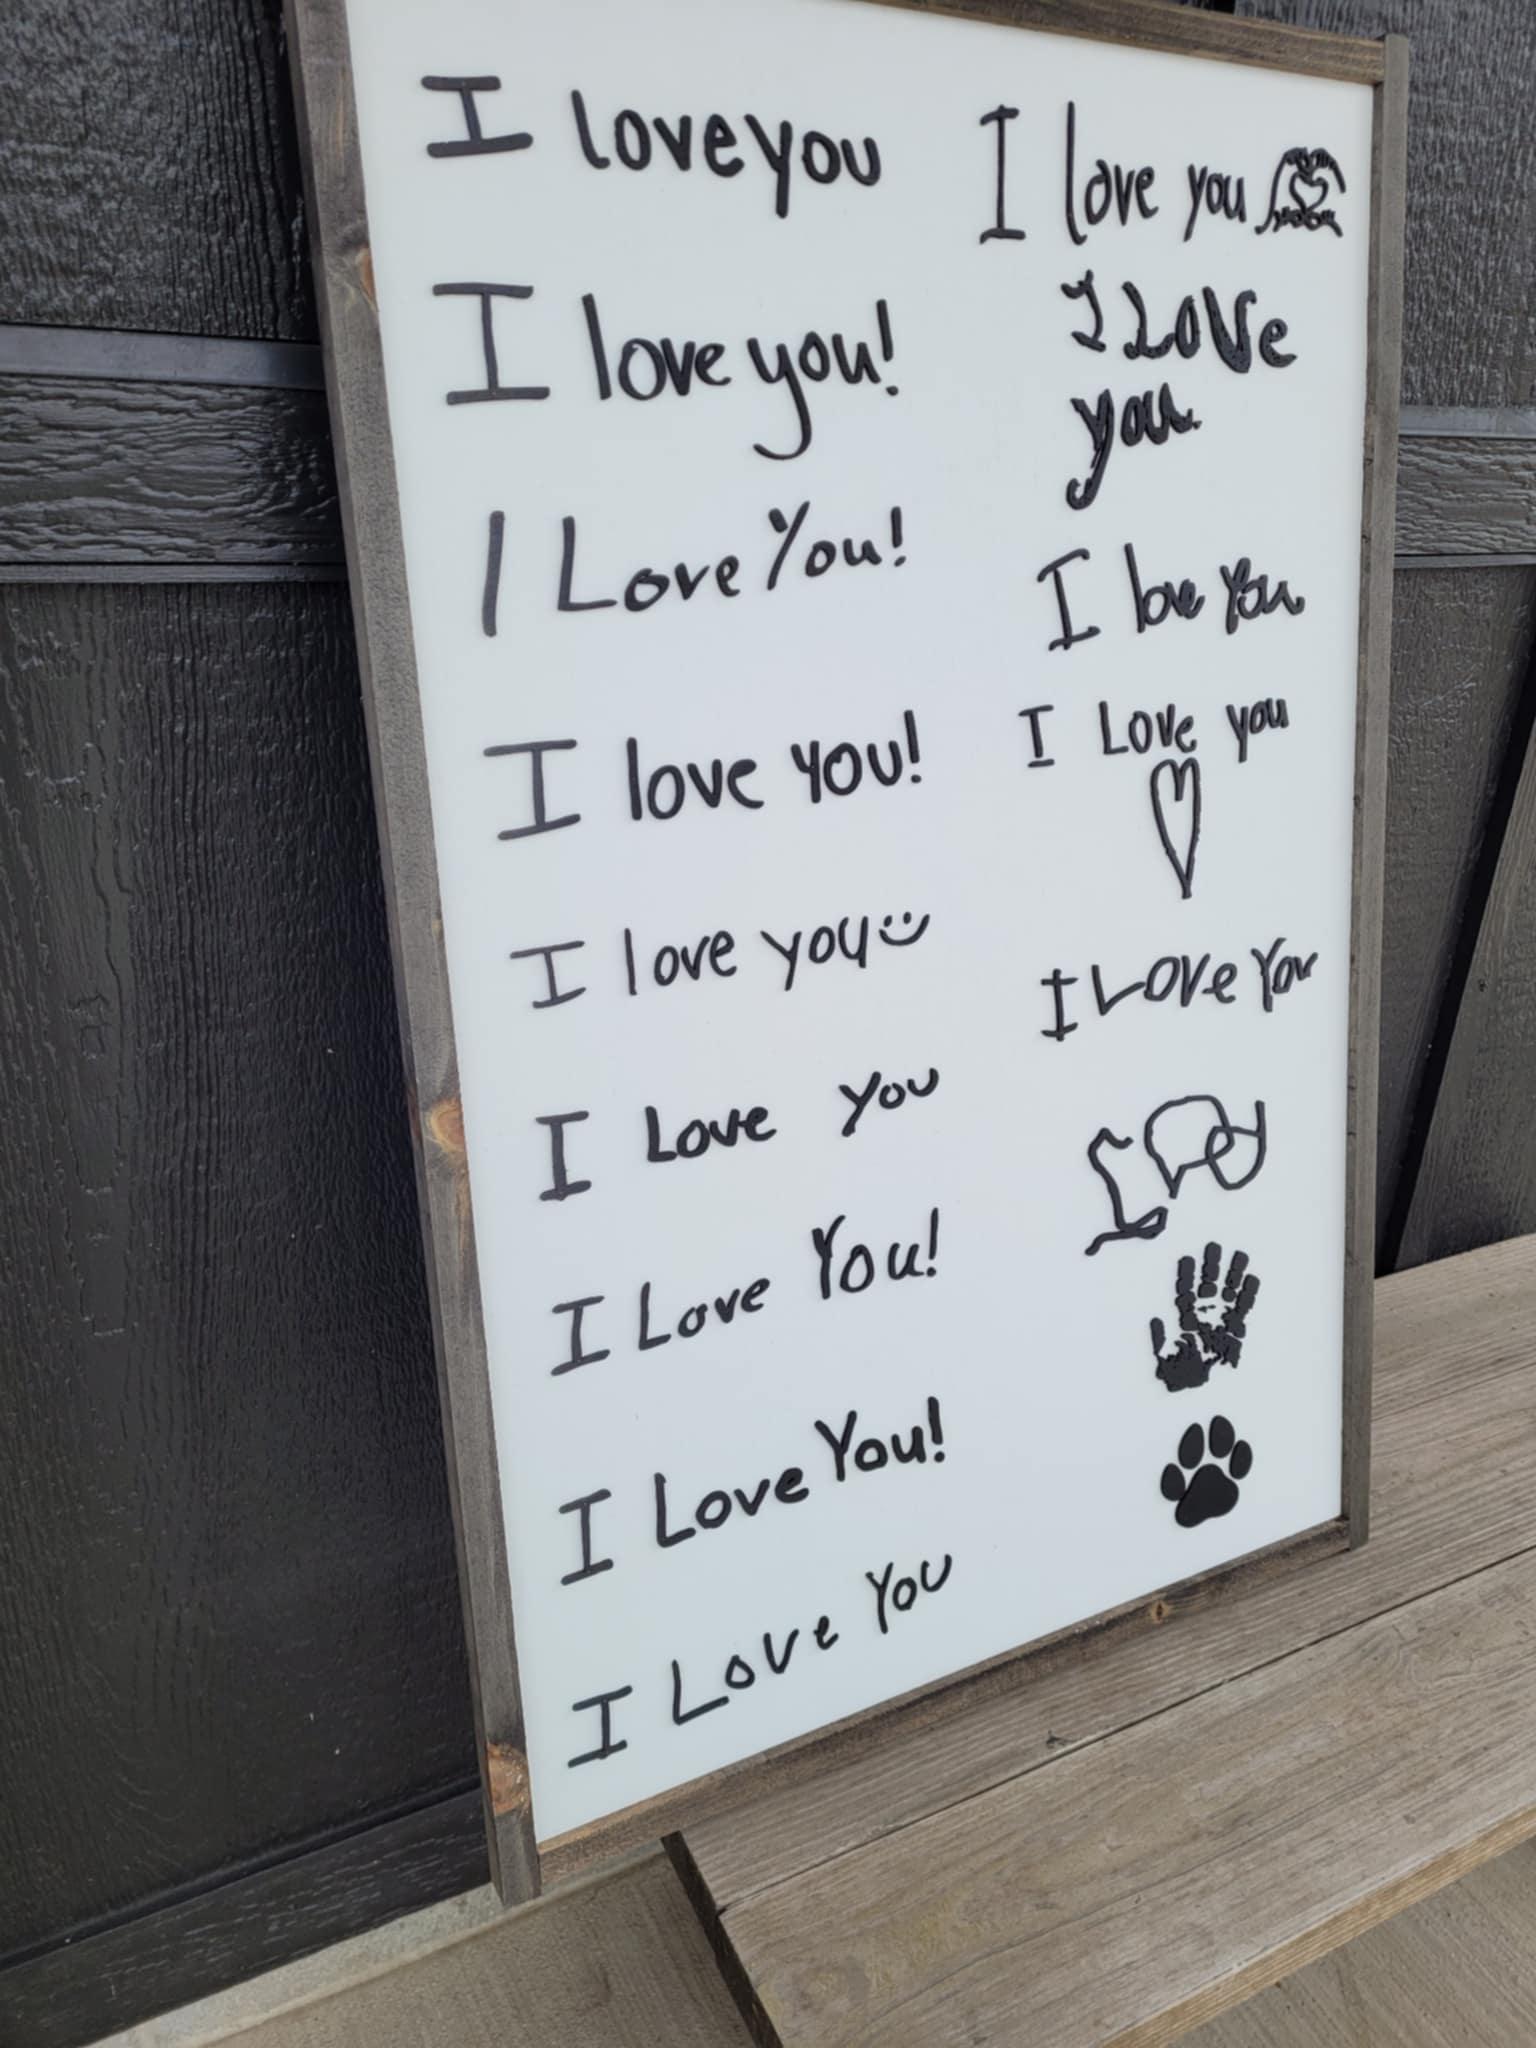 I love you
I love you!
I Love You!
I love you!
I love you
I Love you
I Love You!
I Love You!
I Love You
I love you
I Love
you
I love You
I Love you
I Love You